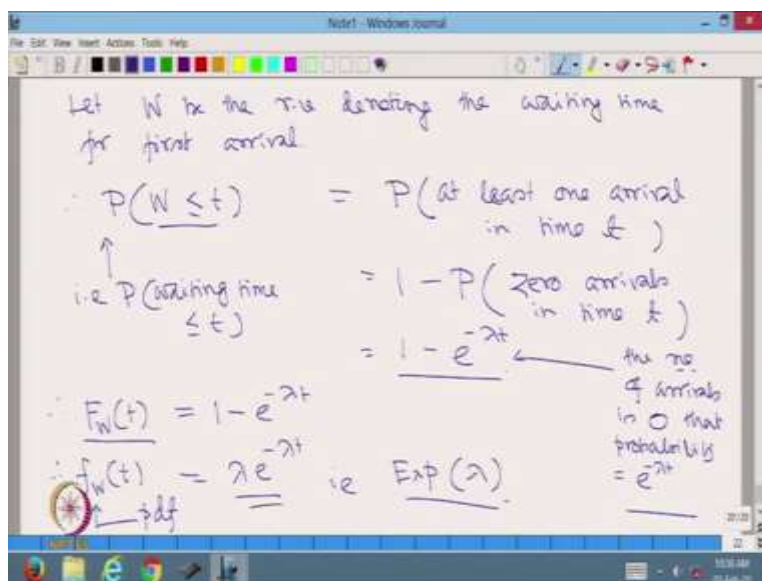 Note1 - Windows Journal
File Edit View Insert Actions Tools Help
Let W be the r.v denoting the waiting time
for first arrival
∴ P(W ≤ t) = P(at least one arrival
in time t)
i.e P(waiting time
≤ t)
= 1 - P(zero arrivals
in time t)
= 1 - e^{-λt}
the no
of arrivals
is 0 that
probability
= e^{-λt}
∴ F_W(t) = 1 - e^{-λt}
∴ f_W(t) = λe^{-λt} i.e Exp(λ)
pdf
22